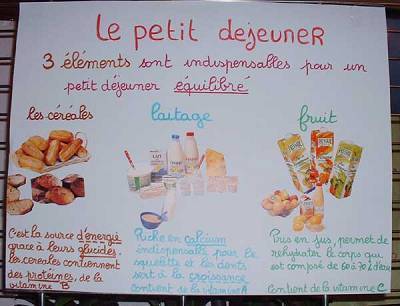 le petit dejeuneR
3 éléments sont indispensables pour un
petit déjeuner équilibré
les céréales
laitage
fruit
C'est la source d'énergie
grace à leurs glucides.
les céréales contiennent
des protéines, de la
vitamine B
Riche en calcium
indispensable pour le
squelette et les dents
sert à la croissance
contient de la vitamine A
Pris en jus, permet de
réhydrater le corps qui
est composé de 60 à 70% d'eau
Contient de la vitamine C